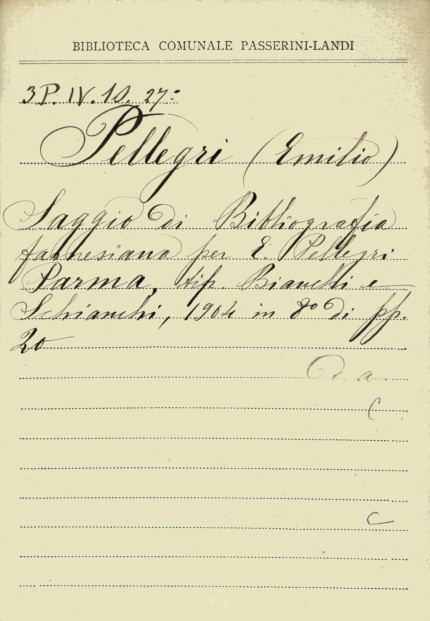 BIBLIOTECA COMUNALE PASSERINI-LANDI
3P. IV. 10. 27º
Pellegri (Emilio)
Saggio di Bibliografia
farnesiana per E. Pellegri
Parma, tip Bianchi e
Schianchi, 1904 in 8º di pp.
20
C
C